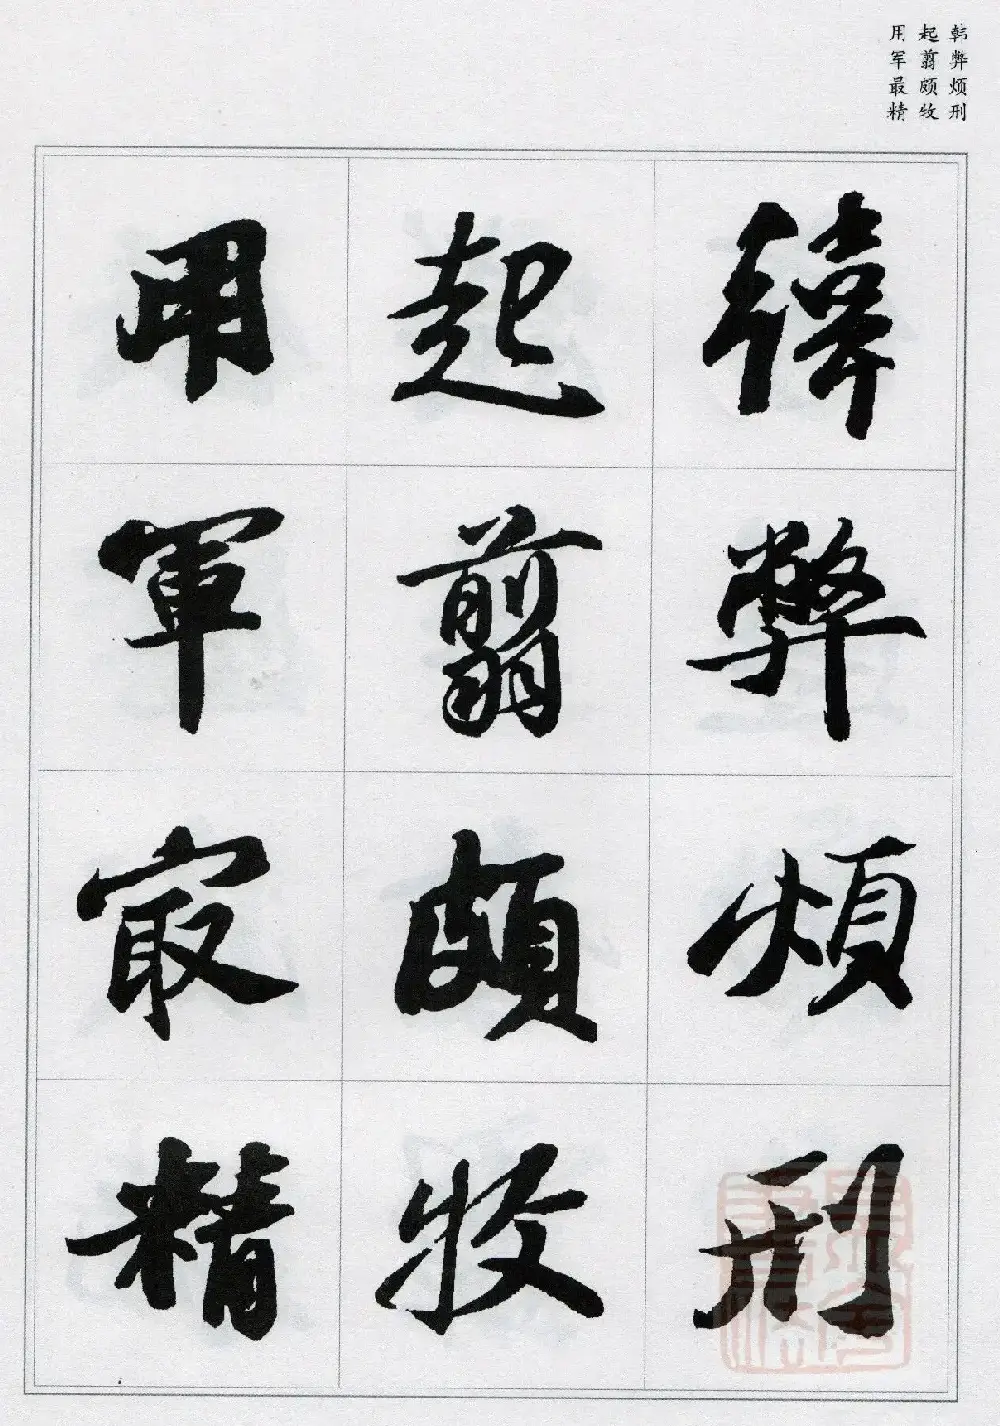 韩弊烦刑
起翦颇牧
用军最精
韓弊煩刑
起翦頗牧
用軍冣精